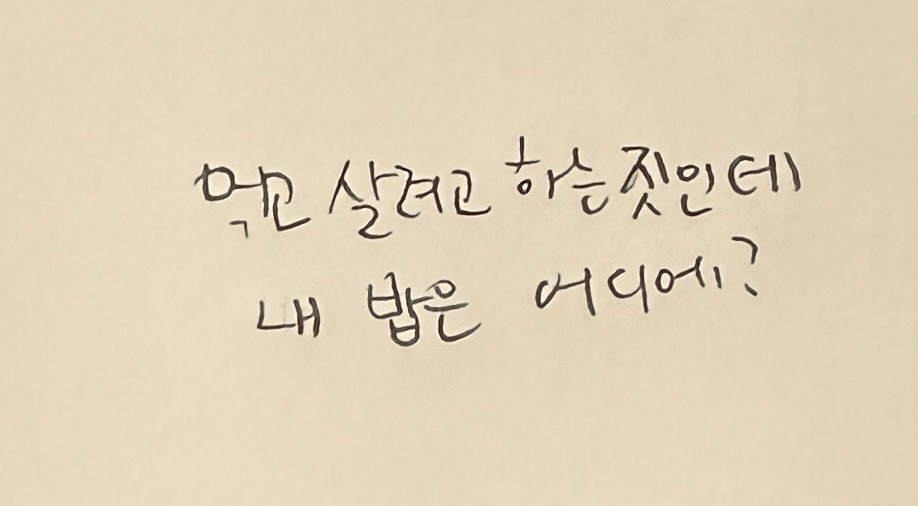 먹고 살려고 하는짓인데
내 밥은 어디에?